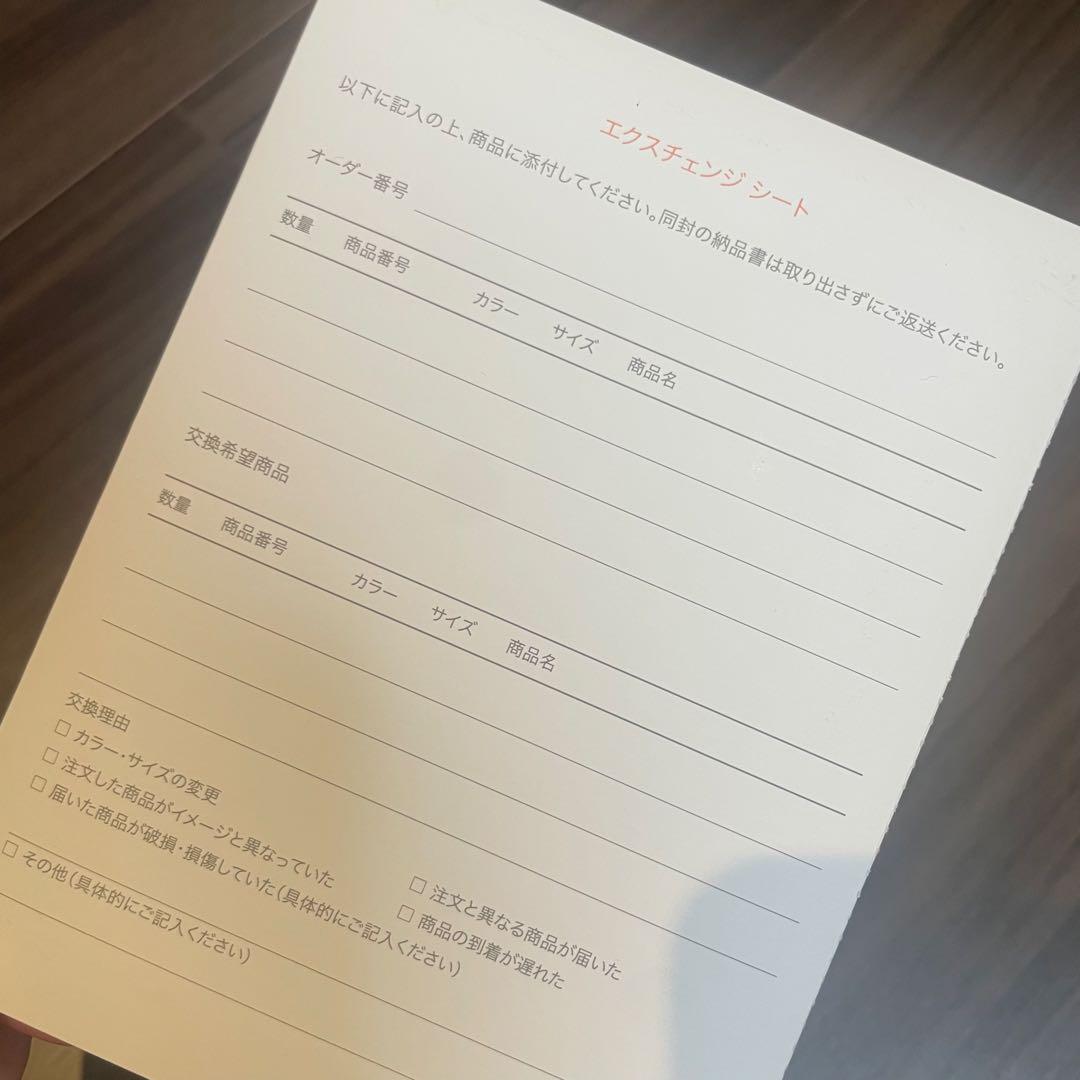 エクスチェンジ シート
以下に記入の上、商品に添付してください。同封の納品書は取り出さずにご返送ください。
オーダー番号
数量 商品番号 カラー サイズ 商品名
交換希望商品
数量 商品番号 カラー サイズ 商品名
交換理由
□ カラー・サイズの変更
□ 注文した商品がイメージと異なっていた □ 注文と異なる商品が届いた
□ 届いた商品が破損・損傷していた（具体的にご記入ください） □ 商品の到着が遅れた
□ その他（具体的にご記入ください）